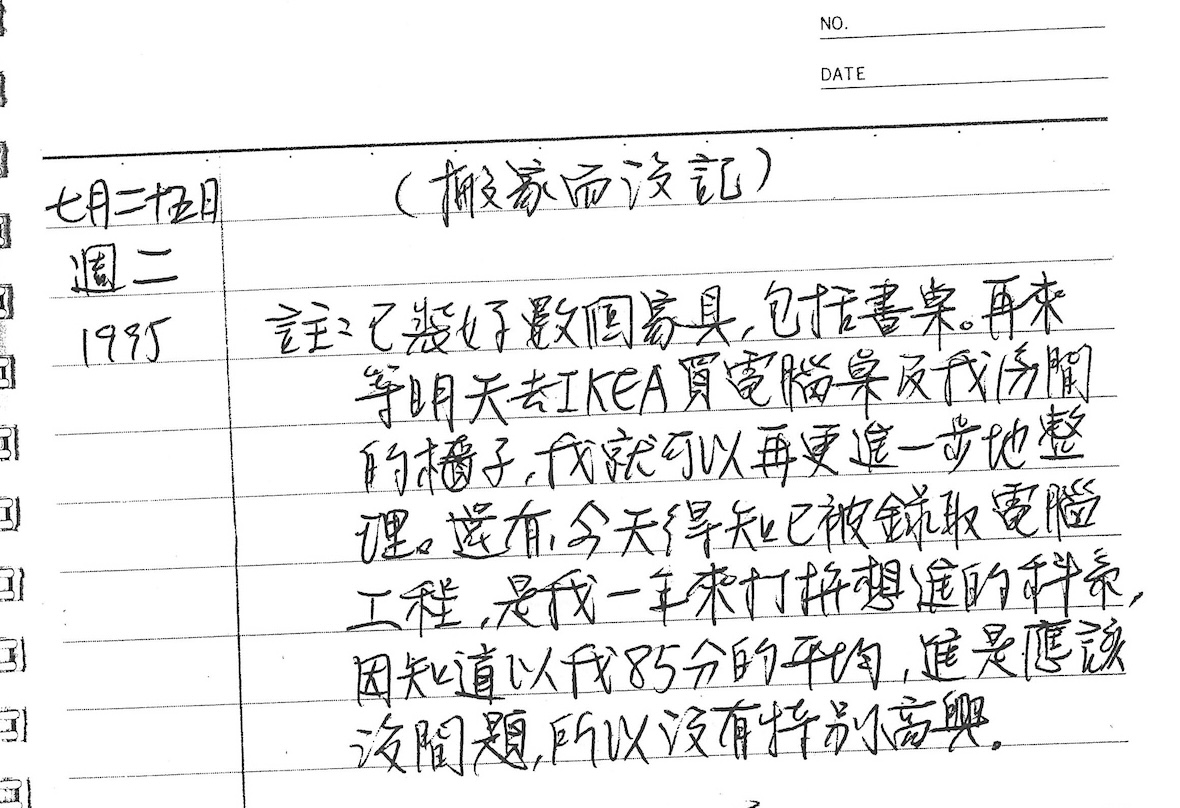 NO.
DATE
七月二十五日
週二
1995
(搬家而沒記)
註:已裝好數個家具,包括書桌。再來
等明天去IKEA買電腦桌及我房間
的櫃子,我就可以再更進一步地整
理。還有,今天得知已被錄取電腦
工程,是我一年來打拚想進的科系,
因知道以我85分的平均,進是應該
沒問題,所以沒有特別高興。